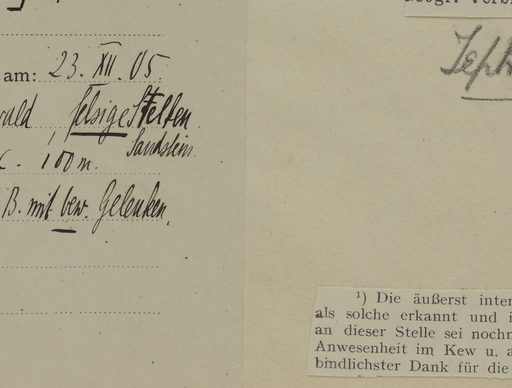 am: 23. XII. 05.
wald, felsige Stellen
Sandstein.
. 100 m.
B. mit bew. Gelenken.
Geogr. Verb
Teph
¹) Die äußerst inter
als solche erkannt und i
an dieser Stelle sei nochm
Anwesenheit im Kew u. a
bindlichster Dank für die